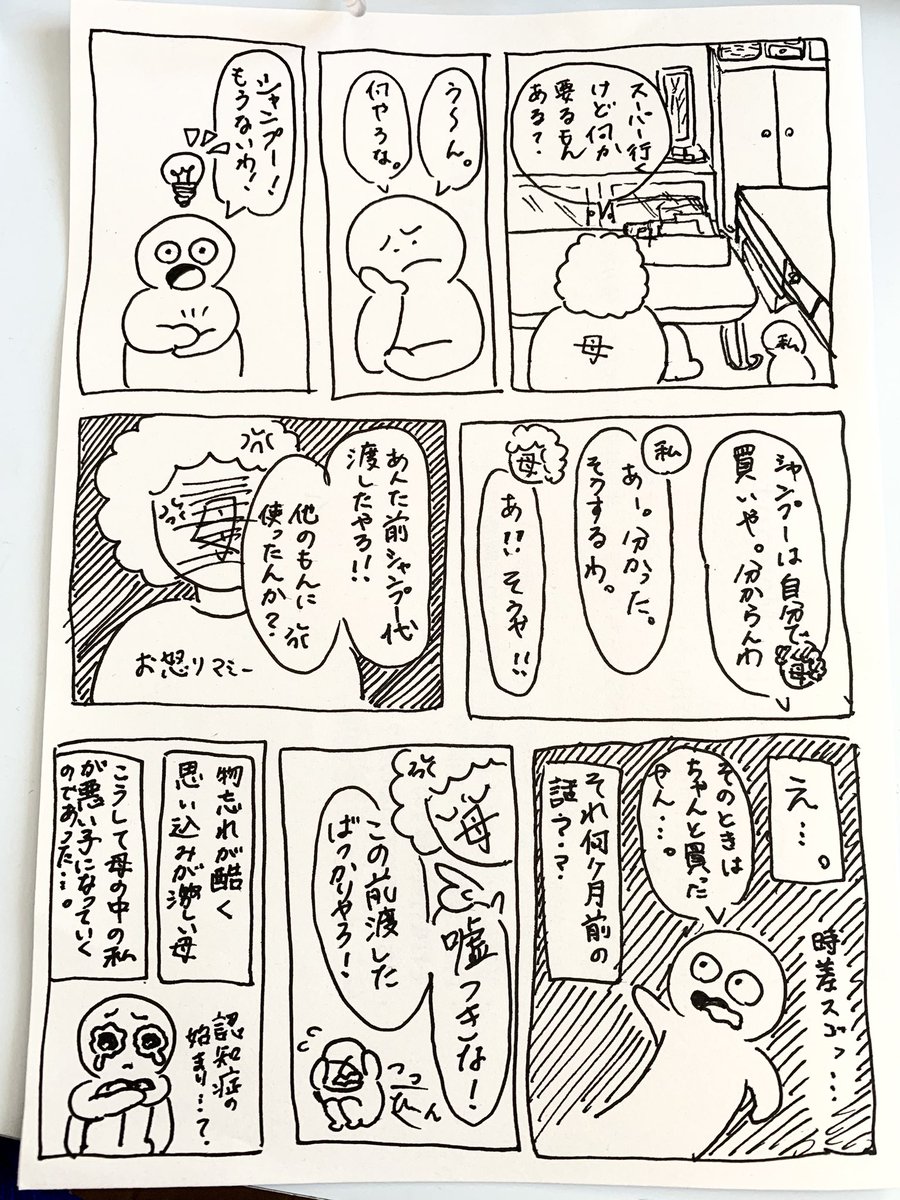 スーパー行く
けど何か
要るもん
ある?
母
私
う〜ん。
何やろな。
シャンプー!
もうないわ!
シャンプーは自分で
買いや。分からんわ
母
私
あー。分かった。
そうするわ。
母
あ!!そうや!!
あんた前シャンプー代
渡したやろ!!
他のもんに
使ったんか?
母
お怒りマミー
え…。
そのときは
ちゃんと買った
やん…。
それ何ヶ月前の
話??
時差スゴッ…
母
嘘つきな!
この前渡した
ばっかりやろ!
物忘れが酷く
思い込みが激しい母
こうして母の中の私
が悪い子になっていく
のであった…。
認知症の
始まり…?